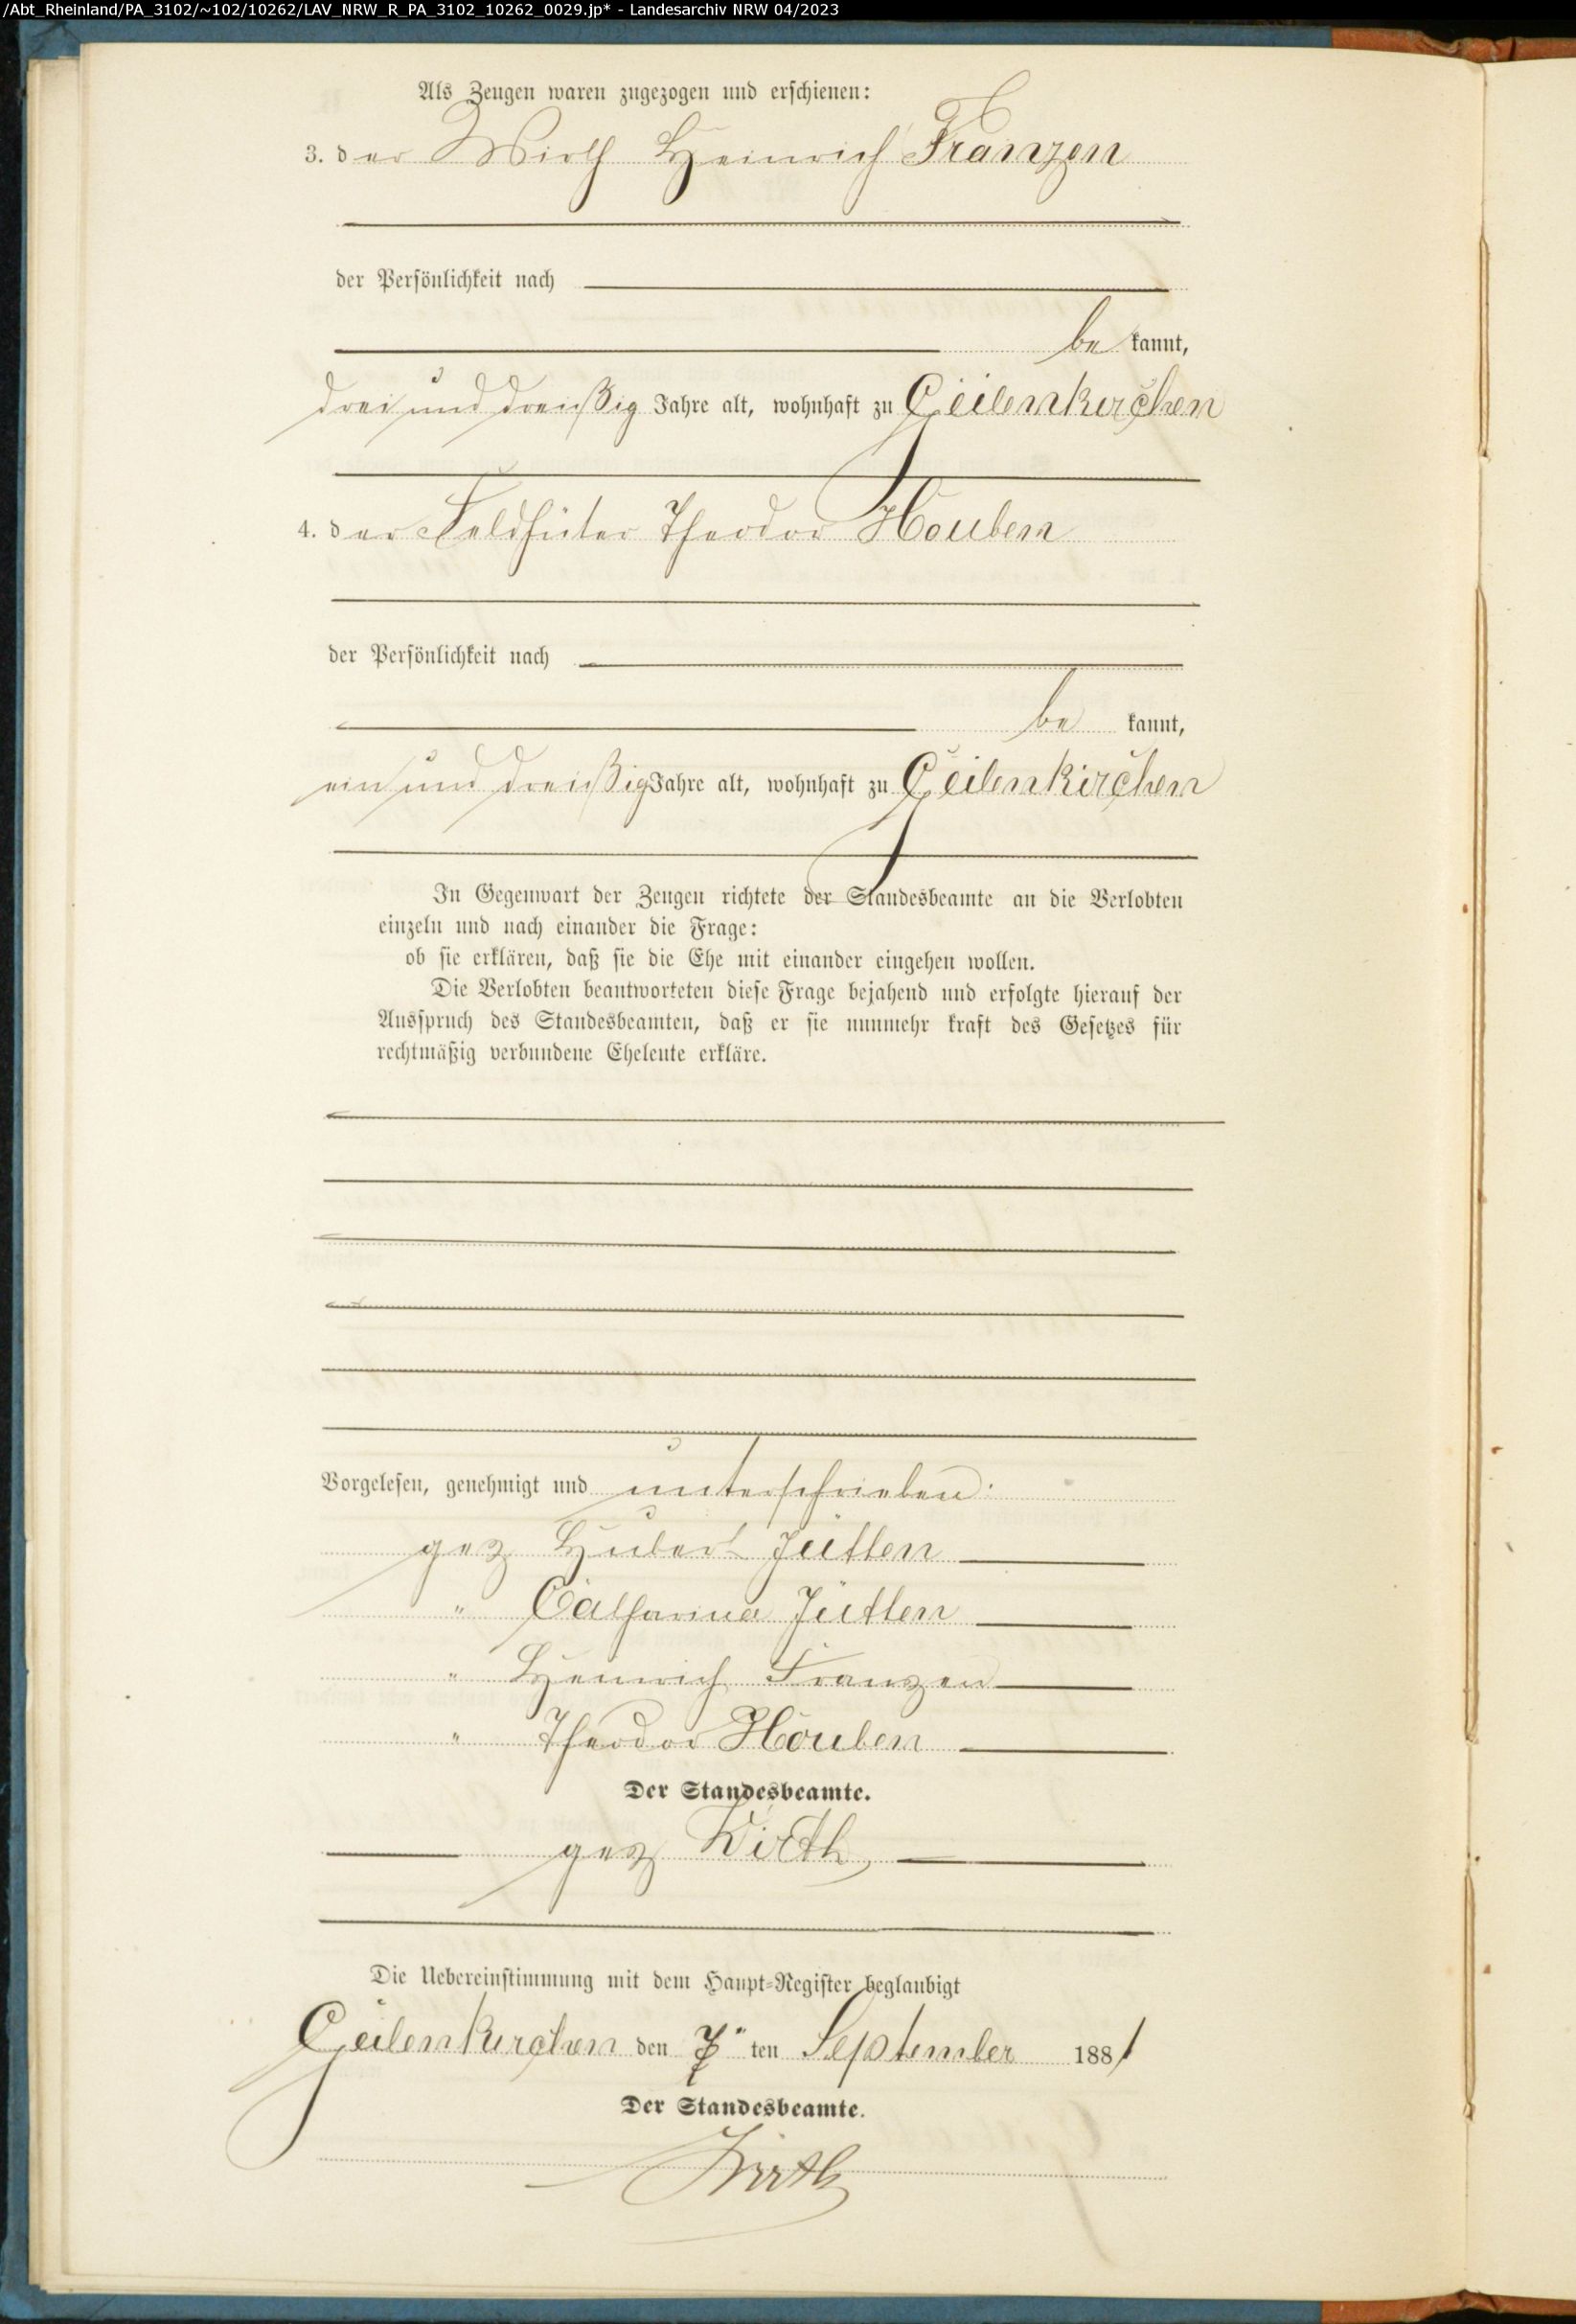 /Abt_Rheinland/PA_3102/~102/10262/LAV_NRW_R_PA_3102_10262_0029.jp* - Landesarchiv NRW 04/2023
Als Zeugen waren zugezogen und erschienen:
3. der Wirth Heinrich Franzen
der Persönlichkeit nach
be kannt,
drei und dreißig Jahre alt, wohnhaft zu Geilenkirchen
4. der Feldhüter Theodor Houben
der Persönlichkeit nach
be kannt,
ein und dreißig Jahre alt, wohnhaft zu Geilenkirchen
In Gegenwart der Zeugen richtete der Standesbeamte an die Verlobten
einzeln und nach einander die Frage:
ob sie erklären, daß sie die Ehe mit einander eingehen wollen.
Die Verlobten beantworteten diese Frage bejahend und erfolgte hierauf der
Ausspruch des Standesbeamten, daß er sie nunmehr kraft des Gesetzes für
rechtmäßig verbundene Eheleute erkläre.
Vorgelesen, genehmigt und unterschrieben:
gez Hubert Jütten
" Catharina Jütten
" Heinrich Franzen
" Theodor Houben
Der Standesbeamte.
gez
Die Uebereinstimmung mit dem Haupt-Register beglaubigt
Geilenkirchen den 7 ten September 1881
Der Standesbeamte.